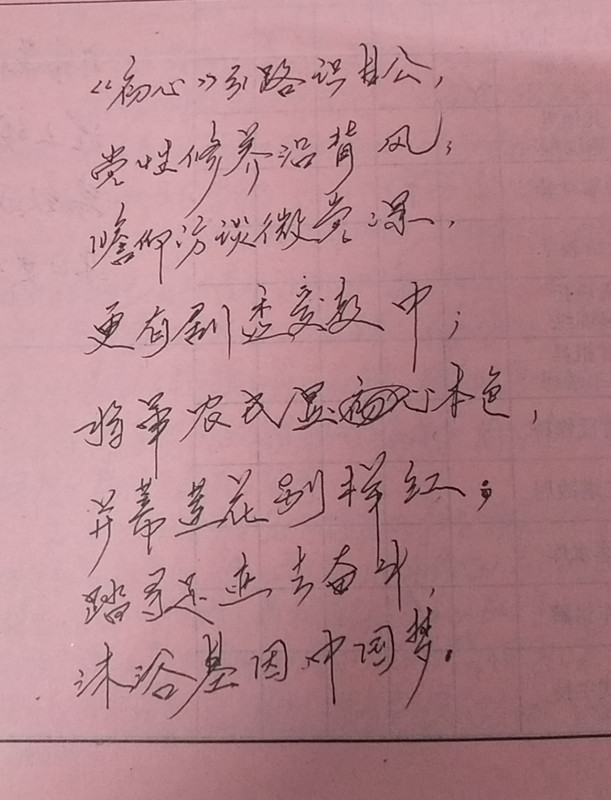 《初心》引路识甘公，
党性修养沿背风；
瞻仰访谈微党课，
更有剧透受教中；
将军农民显本色，
并蒂莲花别样红；
踏寻足迹去奋斗，
沐浴基因中国梦。